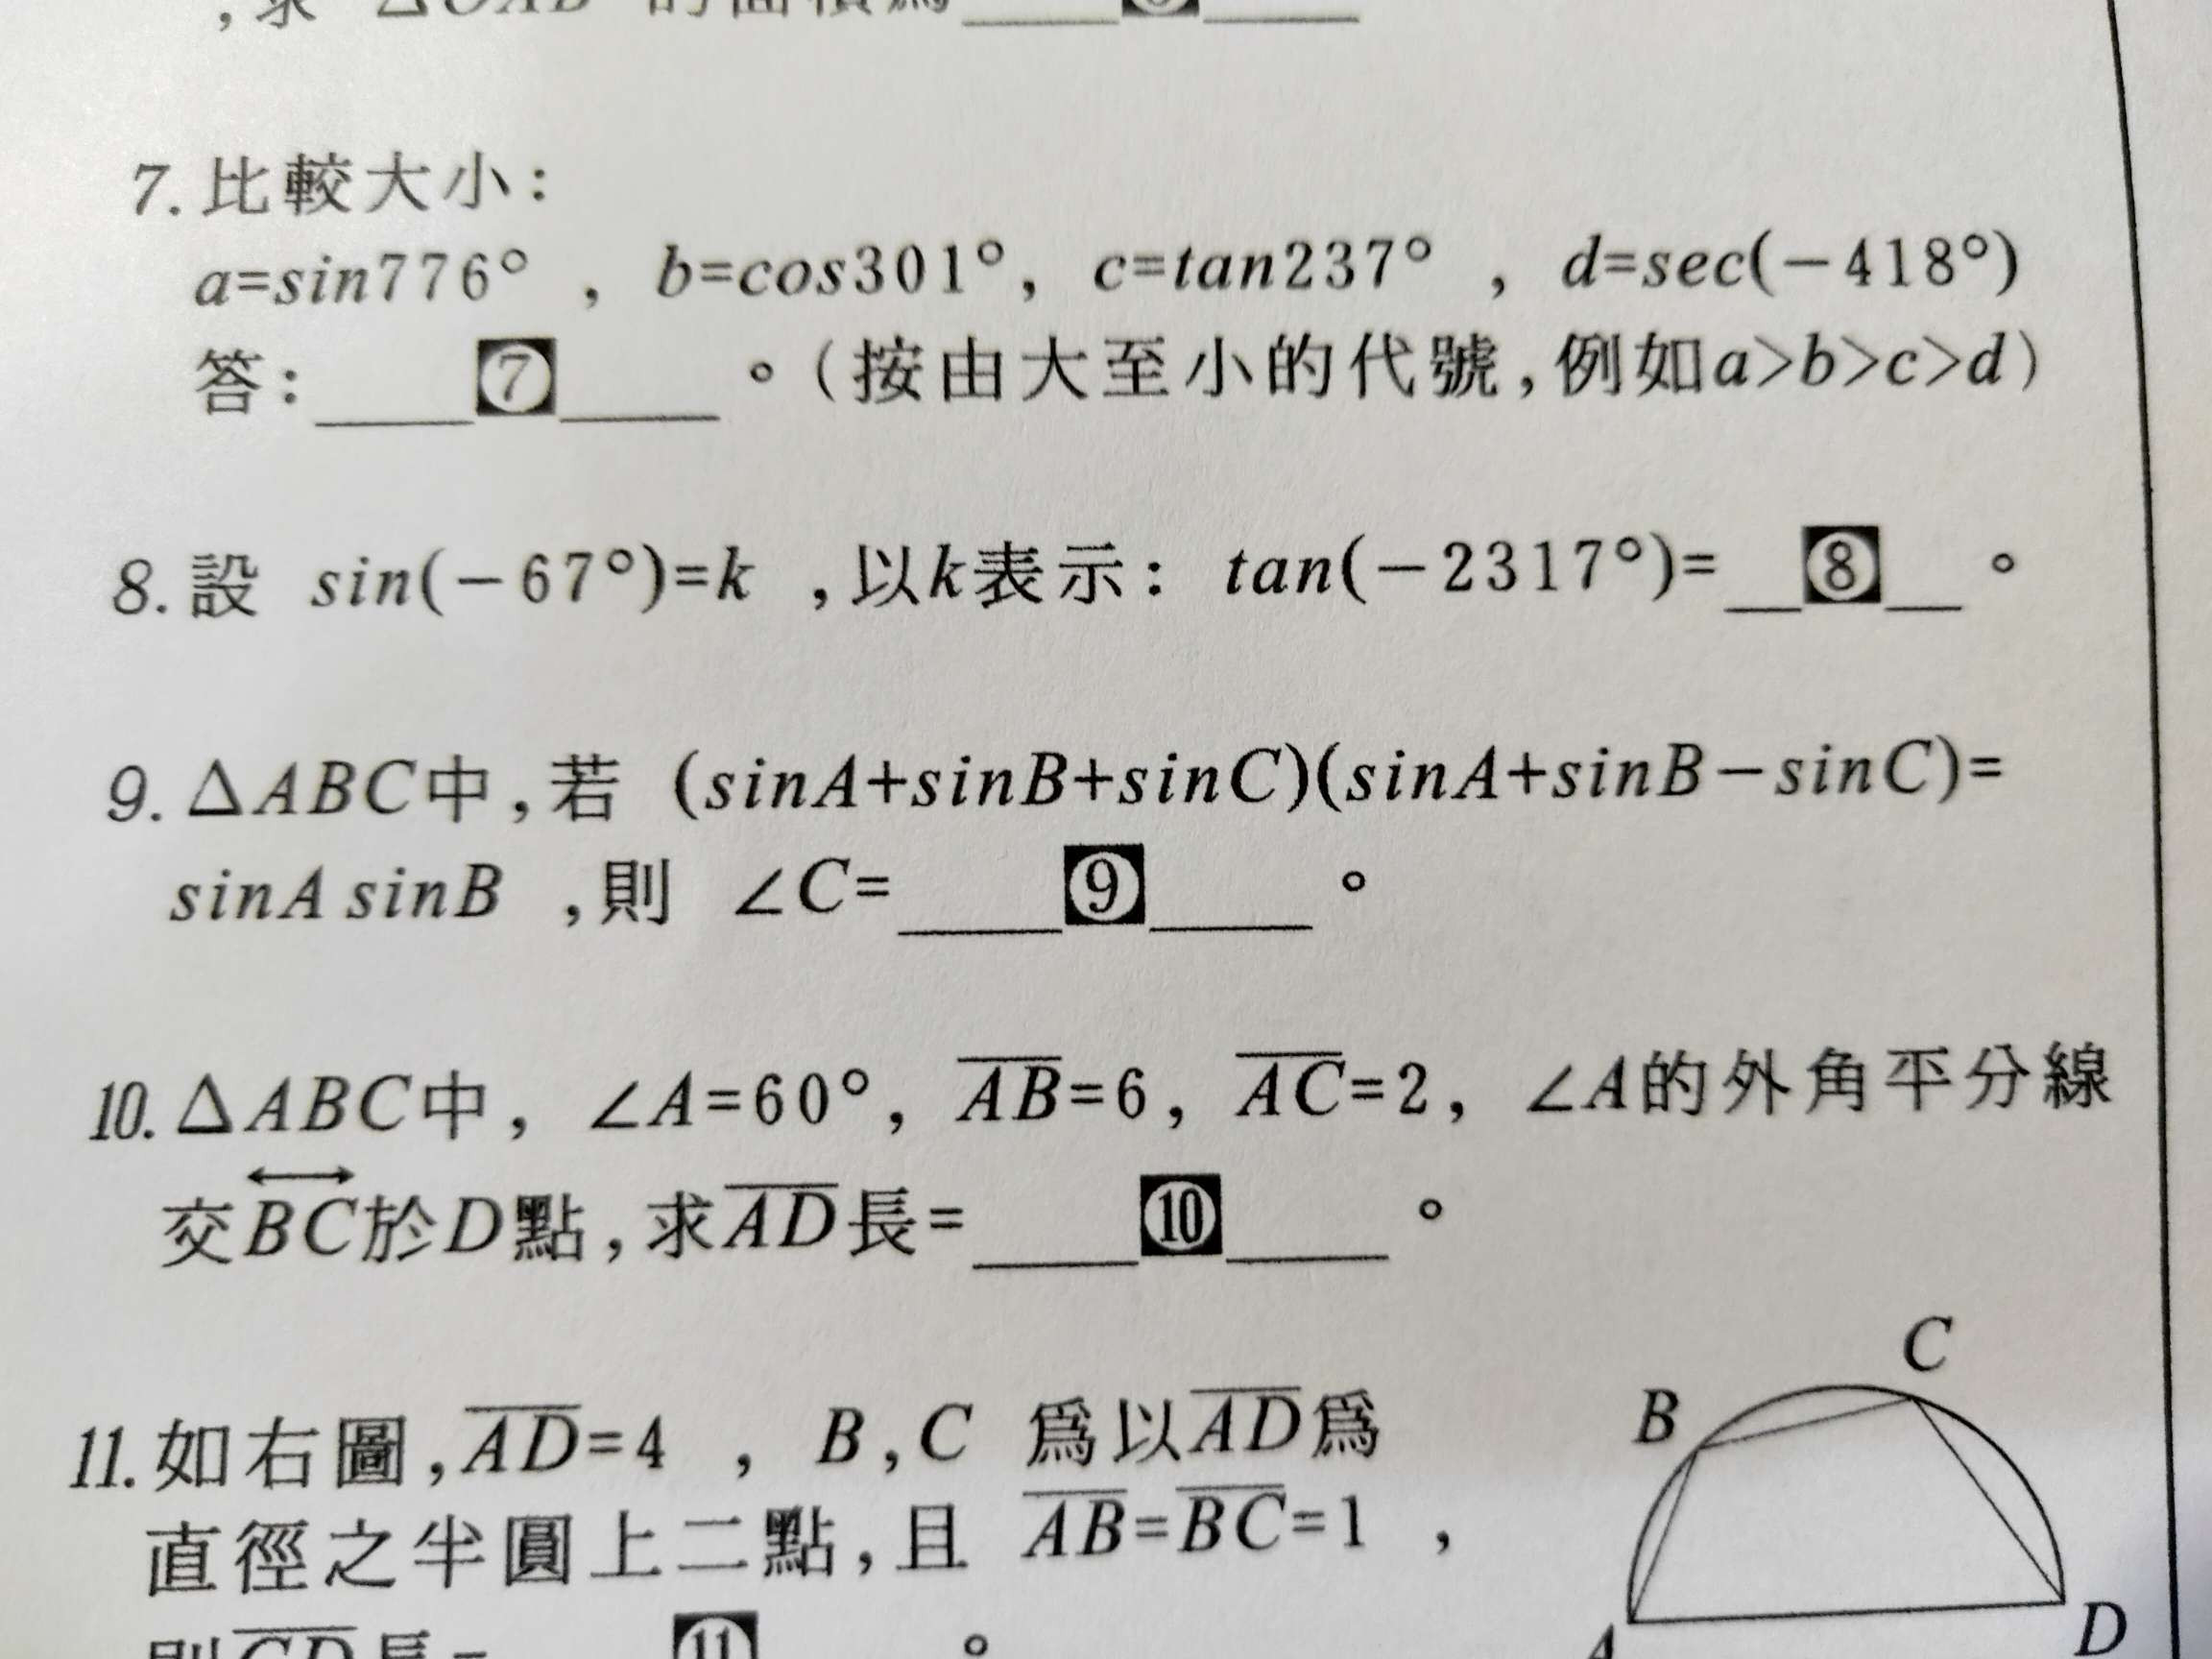 ,求 △OAB 的面積為
7. 比較大小：
a=sin776° ， b=cos301°， c=tan237° ， d=sec(－418°)
答：____⑦____。（按由大至小的代號，例如a>b>c>d）
8. 設 sin(－67°)=k ，以k表示： tan(－2317°)=__⑧__。
9. △ABC中，若 (sinA+sinB+sinC)(sinA+sinB－sinC)=
sinA sinB ，則 ∠C=____⑨____。
10. △ABC中， ∠A=60°， A̅B̅=6， A̅C̅=2， ∠A的外角平分線
交BC於D點，求A̅D̅長=____⑩____。
C
B
11. 如右圖，A̅D̅=4 ， B，C 爲以A̅D̅爲
直徑之半圓上二點，且 A̅B̅=B̅C̅=1 ，
A
D
則C̅D̅長=____⑪____。